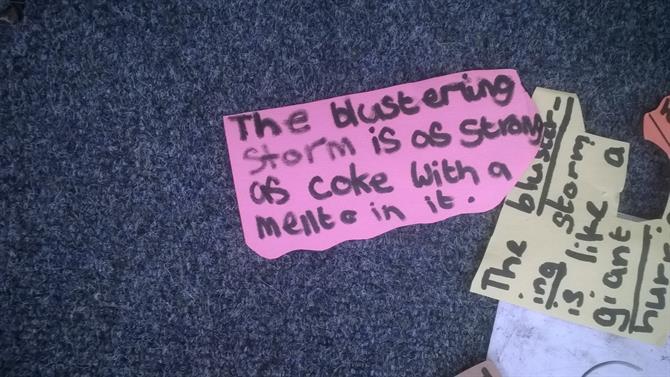 The blustering
storm is as strong
as coke with a
mento in it.
The bluster-
ing storm
is like a
giant
hurri